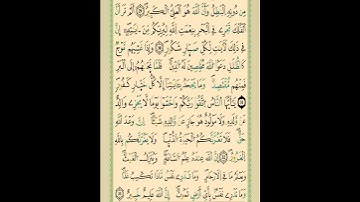 مِن دُونِهِ ٱلْبَٰطِلُ وَأَنَّ ٱللَّهَ هُوَ ٱلْعَلِيُّ ٱلْكَبِيرُ ٣٠ أَلَمْ تَرَ أَنَّ
ٱلْفُلْكَ تَجْرِى فِى ٱلْبَحْرِ بِنِعْمَتِ ٱللَّهِ لِيُرِيَكُم مِّنْ ءَايَٰتِهِۦٓ إِنَّ
فِى ذَٰلِكَ لَءَايَٰتٍ لِّكُلِّ صَبَّارٍ شَكُورٍ ٣١ وَإِذَا غَشِيَهُم مَّوْجٌ
كَٱلظُّلَلِ دَعَوُا۟ ٱللَّهَ مُخْلِصِينَ لَهُ ٱلدِّينَ فَلَمَّا نَجَّىٰهُمْ إِلَى ٱلْبَرِّ
فَمِنْهُم مُّقْتَصِدٌ وَمَا يَجْحَدُ بِـَٔايَٰتِنَآ إِلَّا كُلُّ خَتَّارٍ كَفُورٍ
٣٢ يَٰٓأَيُّهَا ٱلنَّاسُ ٱتَّقُوا۟ رَبَّكُمْ وَٱخْشَوْا۟ يَوْمًا لَّا يَجْزِى وَالِدٌ
عَن وَلَدِهِۦ وَلَا مَوْلُودٌ هُوَ جَازٍ عَن وَالِدِهِۦ شَيْـًٔا إِنَّ وَعْدَ ٱللَّهِ
حَقٌّ فَلَا تَغُرَّنَّكُمُ ٱلْحَيَوٰةُ ٱلدُّنْيَا وَلَا يَغُرَّنَّكُم بِٱللَّهِ
ٱلْغَرُورُ ٣٣ إِنَّ ٱللَّهَ عِندَهُۥ عِلْمُ ٱلسَّاعَةِ وَيُنَزِّلُ ٱلْغَيْثَ
وَيَعْلَمُ مَا فِى ٱلْأَرْحَامِ وَمَا تَدْرِى نَفْسٌ مَّاذَا تَكْسِبُ غَدًا
وَمَا تَدْرِى نَفْسٌۢ بِأَىِّ أَرْضٍ تَمُوتُ إِنَّ ٱللَّهَ عَلِيمٌ خَبِيرٌۢ ٣٤